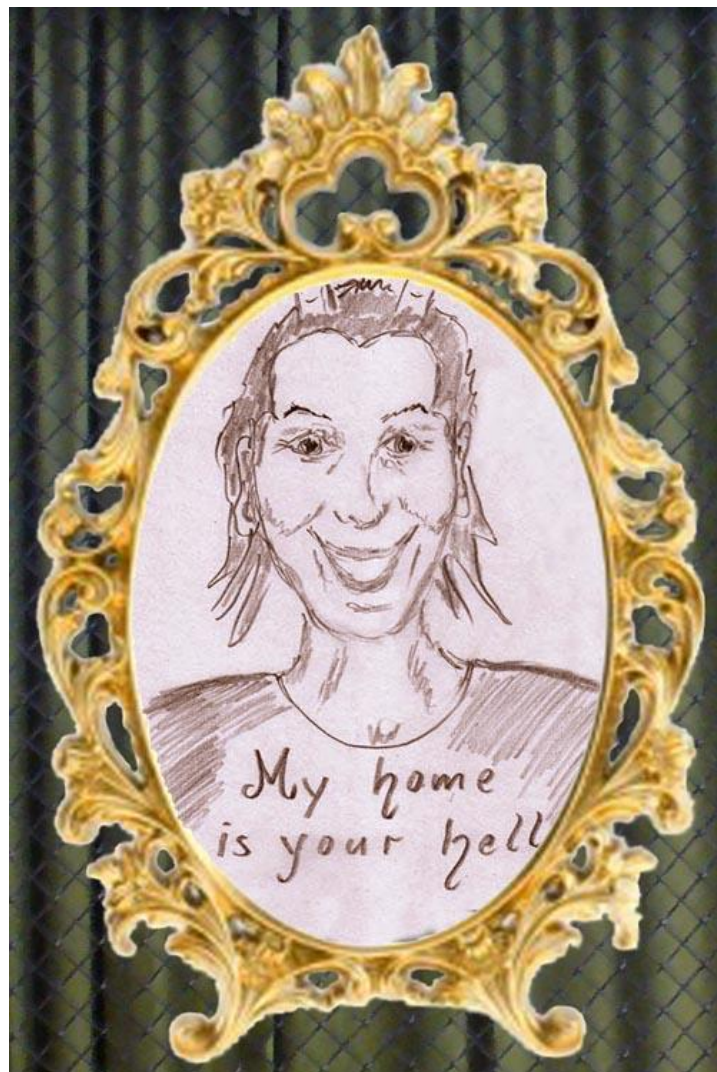 My home
is your hell